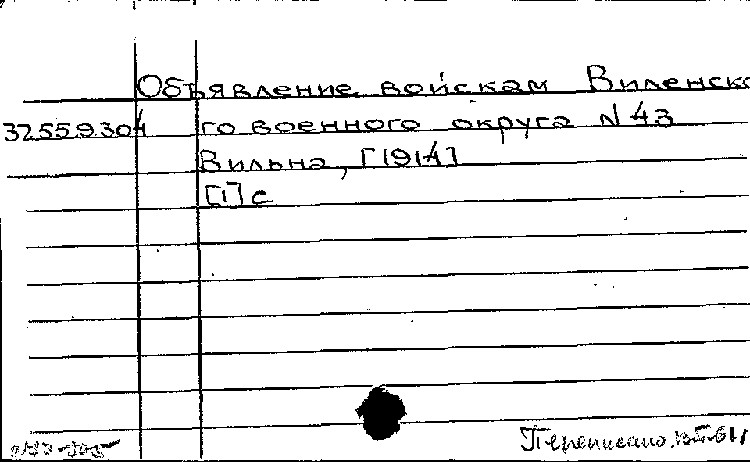 Объявление войскам Виленско
32559304 го военного округа N 43
Вильна, [1914]
[1] с
Переписано